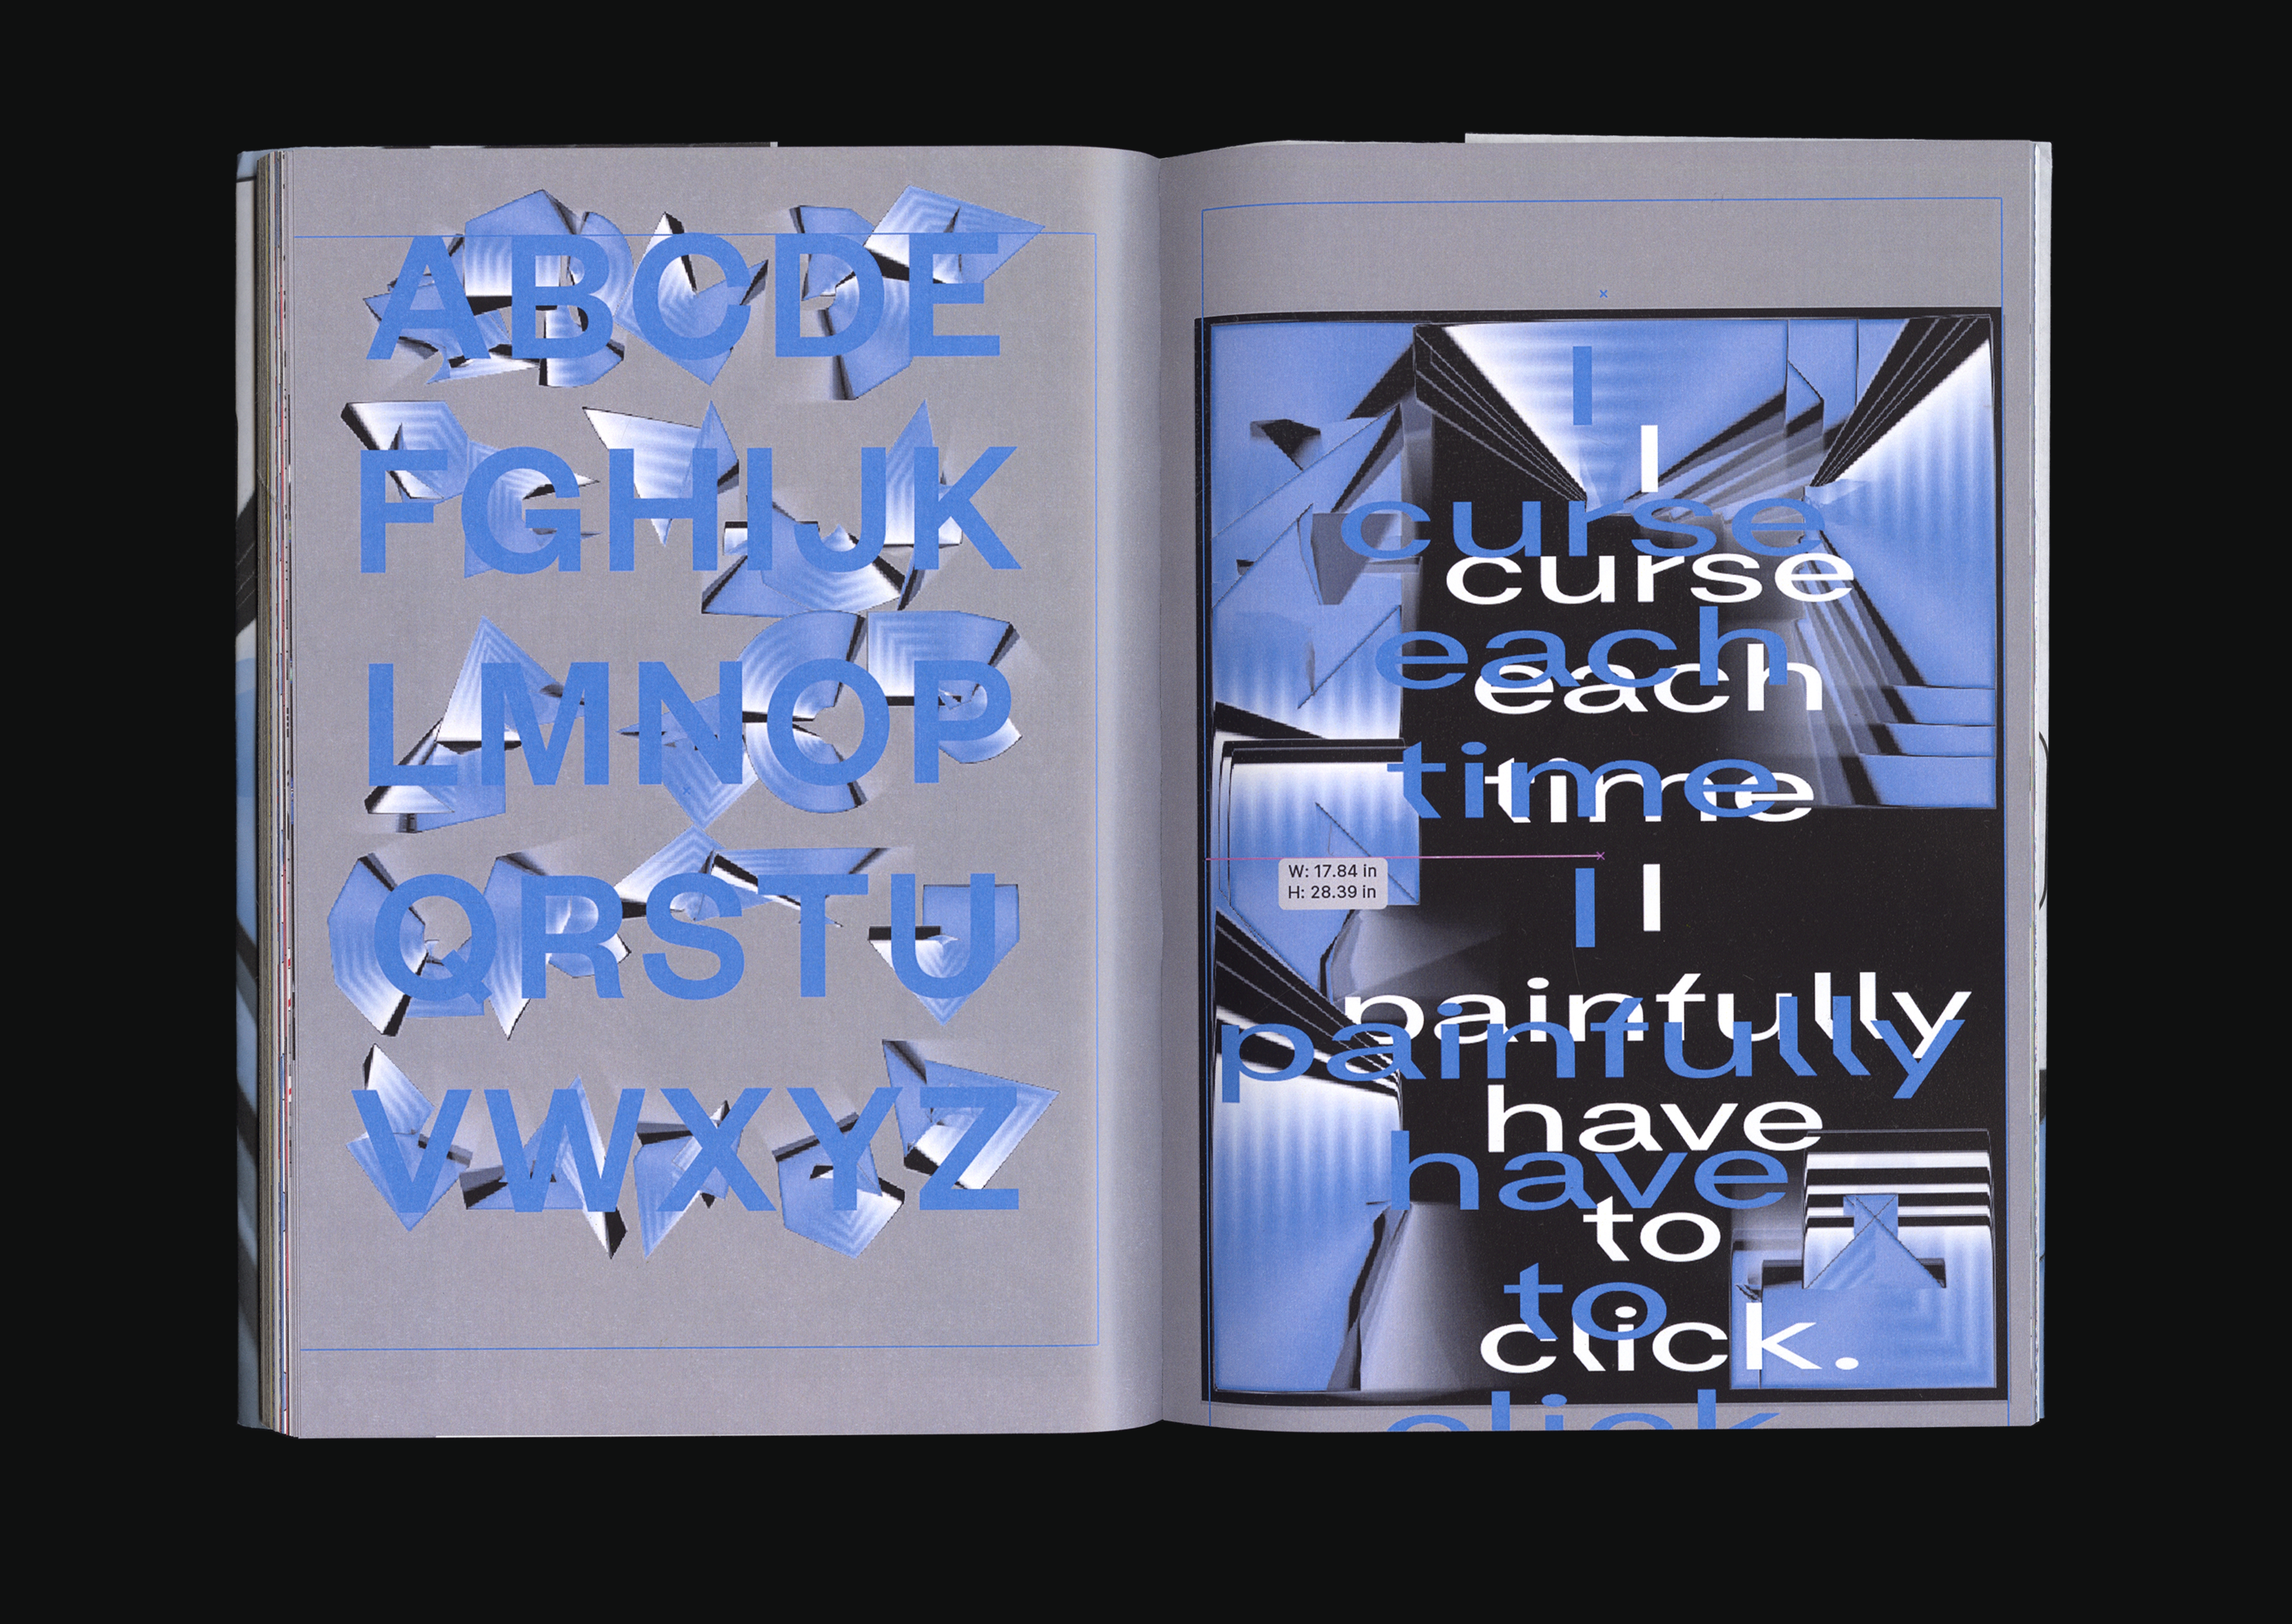 ABCDE
FGHIJK
LMNOP
QRSTU
VWXYZ
I
I
curse
curse
each
each
time
time
W: 17.84 in
H: 28.39 in
I
I
painfully
painfully
have
have
to
to
click.
click